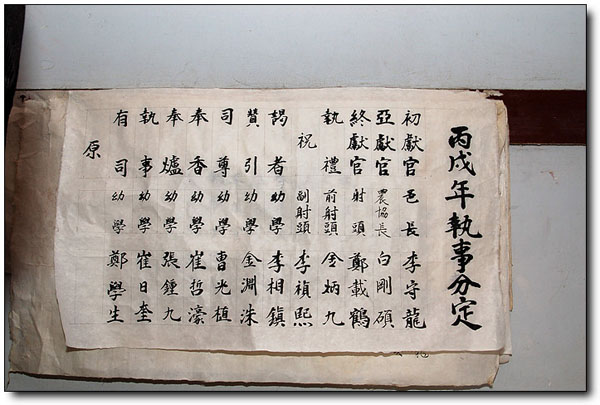 丙戌年執事分定
初獻官 邑長 李守龍
亞獻官 農協長 白剛碩
終獻官 射頭 鄭載鶴
執禮 前射頭 金炳九
祝 副射頭 李禎熙
謁者 幼學 李相鎮
贊引 幼學 金淵洙
司尊 幼學 曺光植
奉香 幼學 崔哲濠
奉爐 幼學 張鍾九
執事 幼學 崔日奎
有司 幼學 鄭學生
原